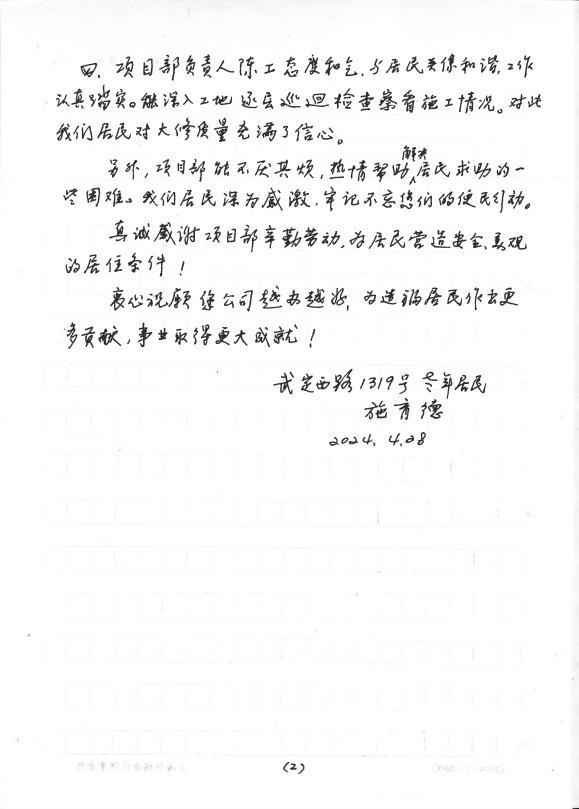 四、项目部负责人陈工态度和气、与居民关系和谐,工作
认真踏实。能深入工地 逐层巡迴检查察看施工情况。对此
我们居民对大修质量充满了信心。
另外,项目部能不厌其烦,热情帮助解决居民求助的一
些困难。我们居民深为感激、牢记不忘您们的便民行动。
真诚感谢项目部辛勤劳动,为居民营造安全、美观
的居住条件!
衷心祝愿 公司越办越好,为造福居民作出更
多贡献,事业取得更大成就!
武定西路1319号 老年居民
施育德
2024.4.28
(2)